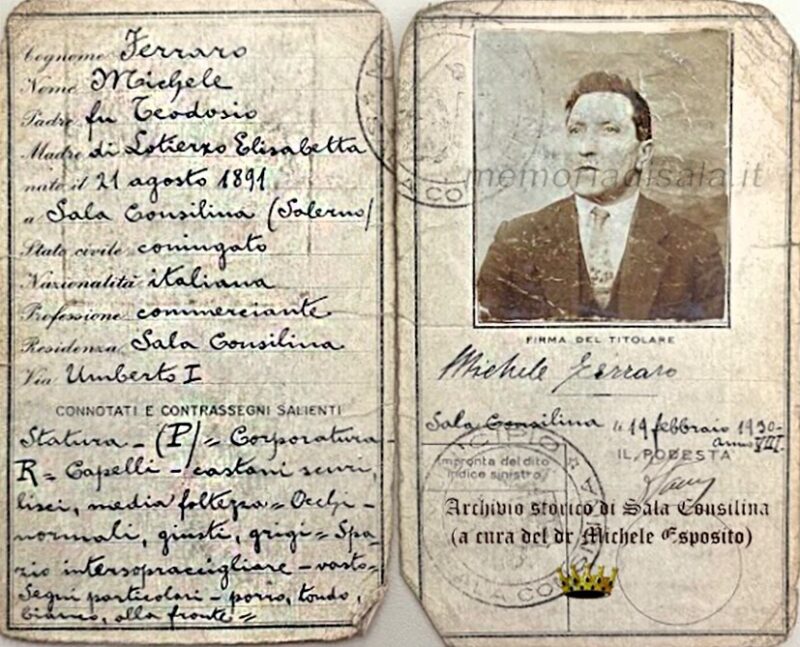 Cognome Ferraro
Nome Michele
Padre fu Teodosio
Madre di Lotierzo Elisabetta
nato il 21 agosto 1891
a Sala Consilina (Salerno)
Stato civile coniugato
Nazionalità italiana
Professione commerciante
Residenza Sala Consilina
Via Umberto I
CONNOTATI E CONTRASSEGNI SALIENTI
Statura - (P) = Corporatura
R = Capelli - castani scuri,
lisci, media foltezza = Occhi -
normali, giusti, grigi = Spa-
zio intersopraccigliare - vasto =
Segni particolari - porro, tondo,
bianco, alla fronte =
memoriadisala.it
FIRMA DEL TITOLARE
Michele Ferraro
Sala Consilina li 19 febbraio 1930-
anno VIII
IL PODESTÀ
Impronta del dito
indice sinistro
Archivio storico di Sala Consilina
(a cura del dr Michele Esposito)